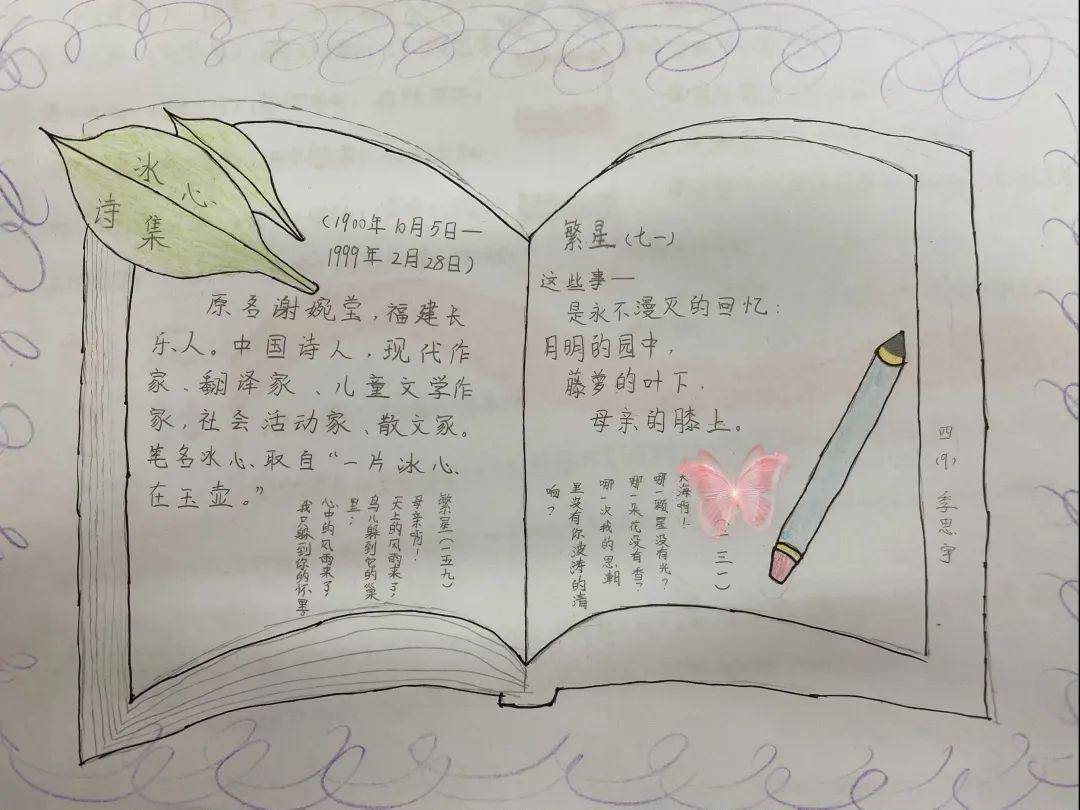 冰心
诗集
(1900年10月5日—
1999年2月28日)
原名谢婉莹,福建长
乐人。中国诗人,现代作
家、翻译家、儿童文学作
家,社会活动家、散文家。
笔名冰心、取自“一片冰心
在玉壶。”
繁星(一五九)
母亲啊!
天上的风雨来了,
鸟儿躲到它的巢
里;
心中的风雨来了
我只躲到你的怀里
繁星(七一)
这些事—
是永不漫灭的回忆:
月明的园中,
藤萝的叶下,
母亲的膝上。
(一三一)
大海啊!
哪一颗星没有光?
哪一朵花没有香?
哪一次我的思潮
里没有你波涛的清
响?
四(9) 季思宇